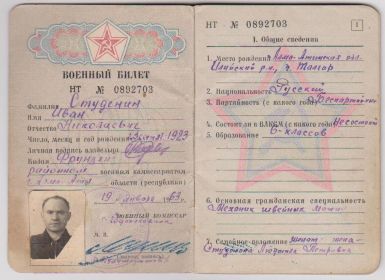 ВОЕННЫЙ БИЛЕТ
НТ № 0892703
Фамилия Студенин
Имя Иван
Отчество Николаевич
Число, месяц и год рождения 1923
Личная подпись владельца
Выдан Фрунзенским
районным военным комиссариатом
Алма-Ата области (республики)
19 января 1963 г.
ВОЕННЫЙ КОМИССАР
М. П.
НТ № 0892703
1
I. Общие сведения
1. Место рождения Алма-Атинская обл.
Илийский р-н, г. Талгар
2. Национальность Русский
3. Партийность (с какого года) Беспартийный
4. Состоит ли в ВЛКСМ (с какого года) не состоит
5. Образование 6 классов
6. Основная гражданская специальность
Механик швейных машин
7. Семейное положение женат, жена
Студенина Петровна